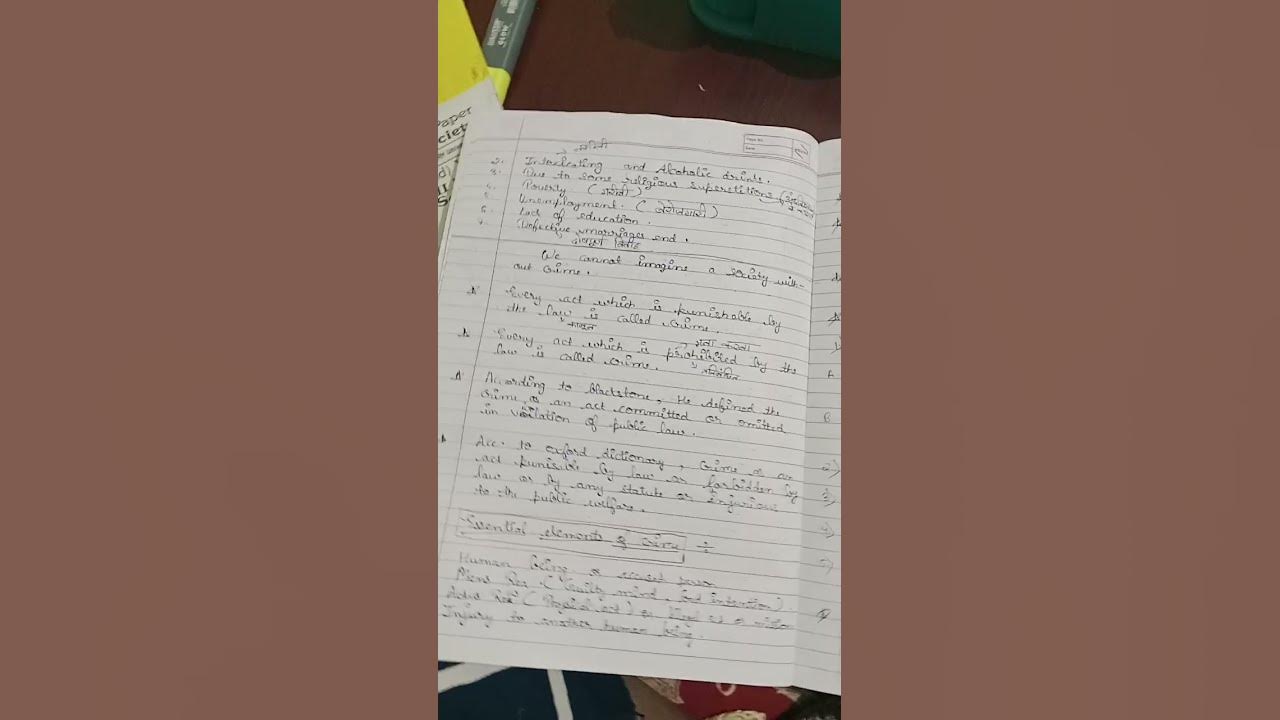 Paper
2. Intoxicating and Alcoholic drinks.
3. Due to some religious superstitions
4. Poverty (गरीबी)
5. Unemployment. (बेरोजगारी)
6. Lack of education.
7. Defective marriages end.
विवाह
We cannot imagine a society with-
out crime.
Every act which is punishable by
the law is called crime.
कानून
मना करना
Every act which is prohibited by the
law is called crime.
According to blackstone, He defined the
crime as an act committed or omitted
in violation of public law.
Acc. to oxford dictionary, crime is an
act punisable by law or forbidden by
law or by any statute or injurious
to the public welfare.
Essential elements of crime ÷
Human being or accused person
Mens Rea (Guilty mind, bad intention).
Actus Rei (Physical act) or illegal act or
Injury to another human being.